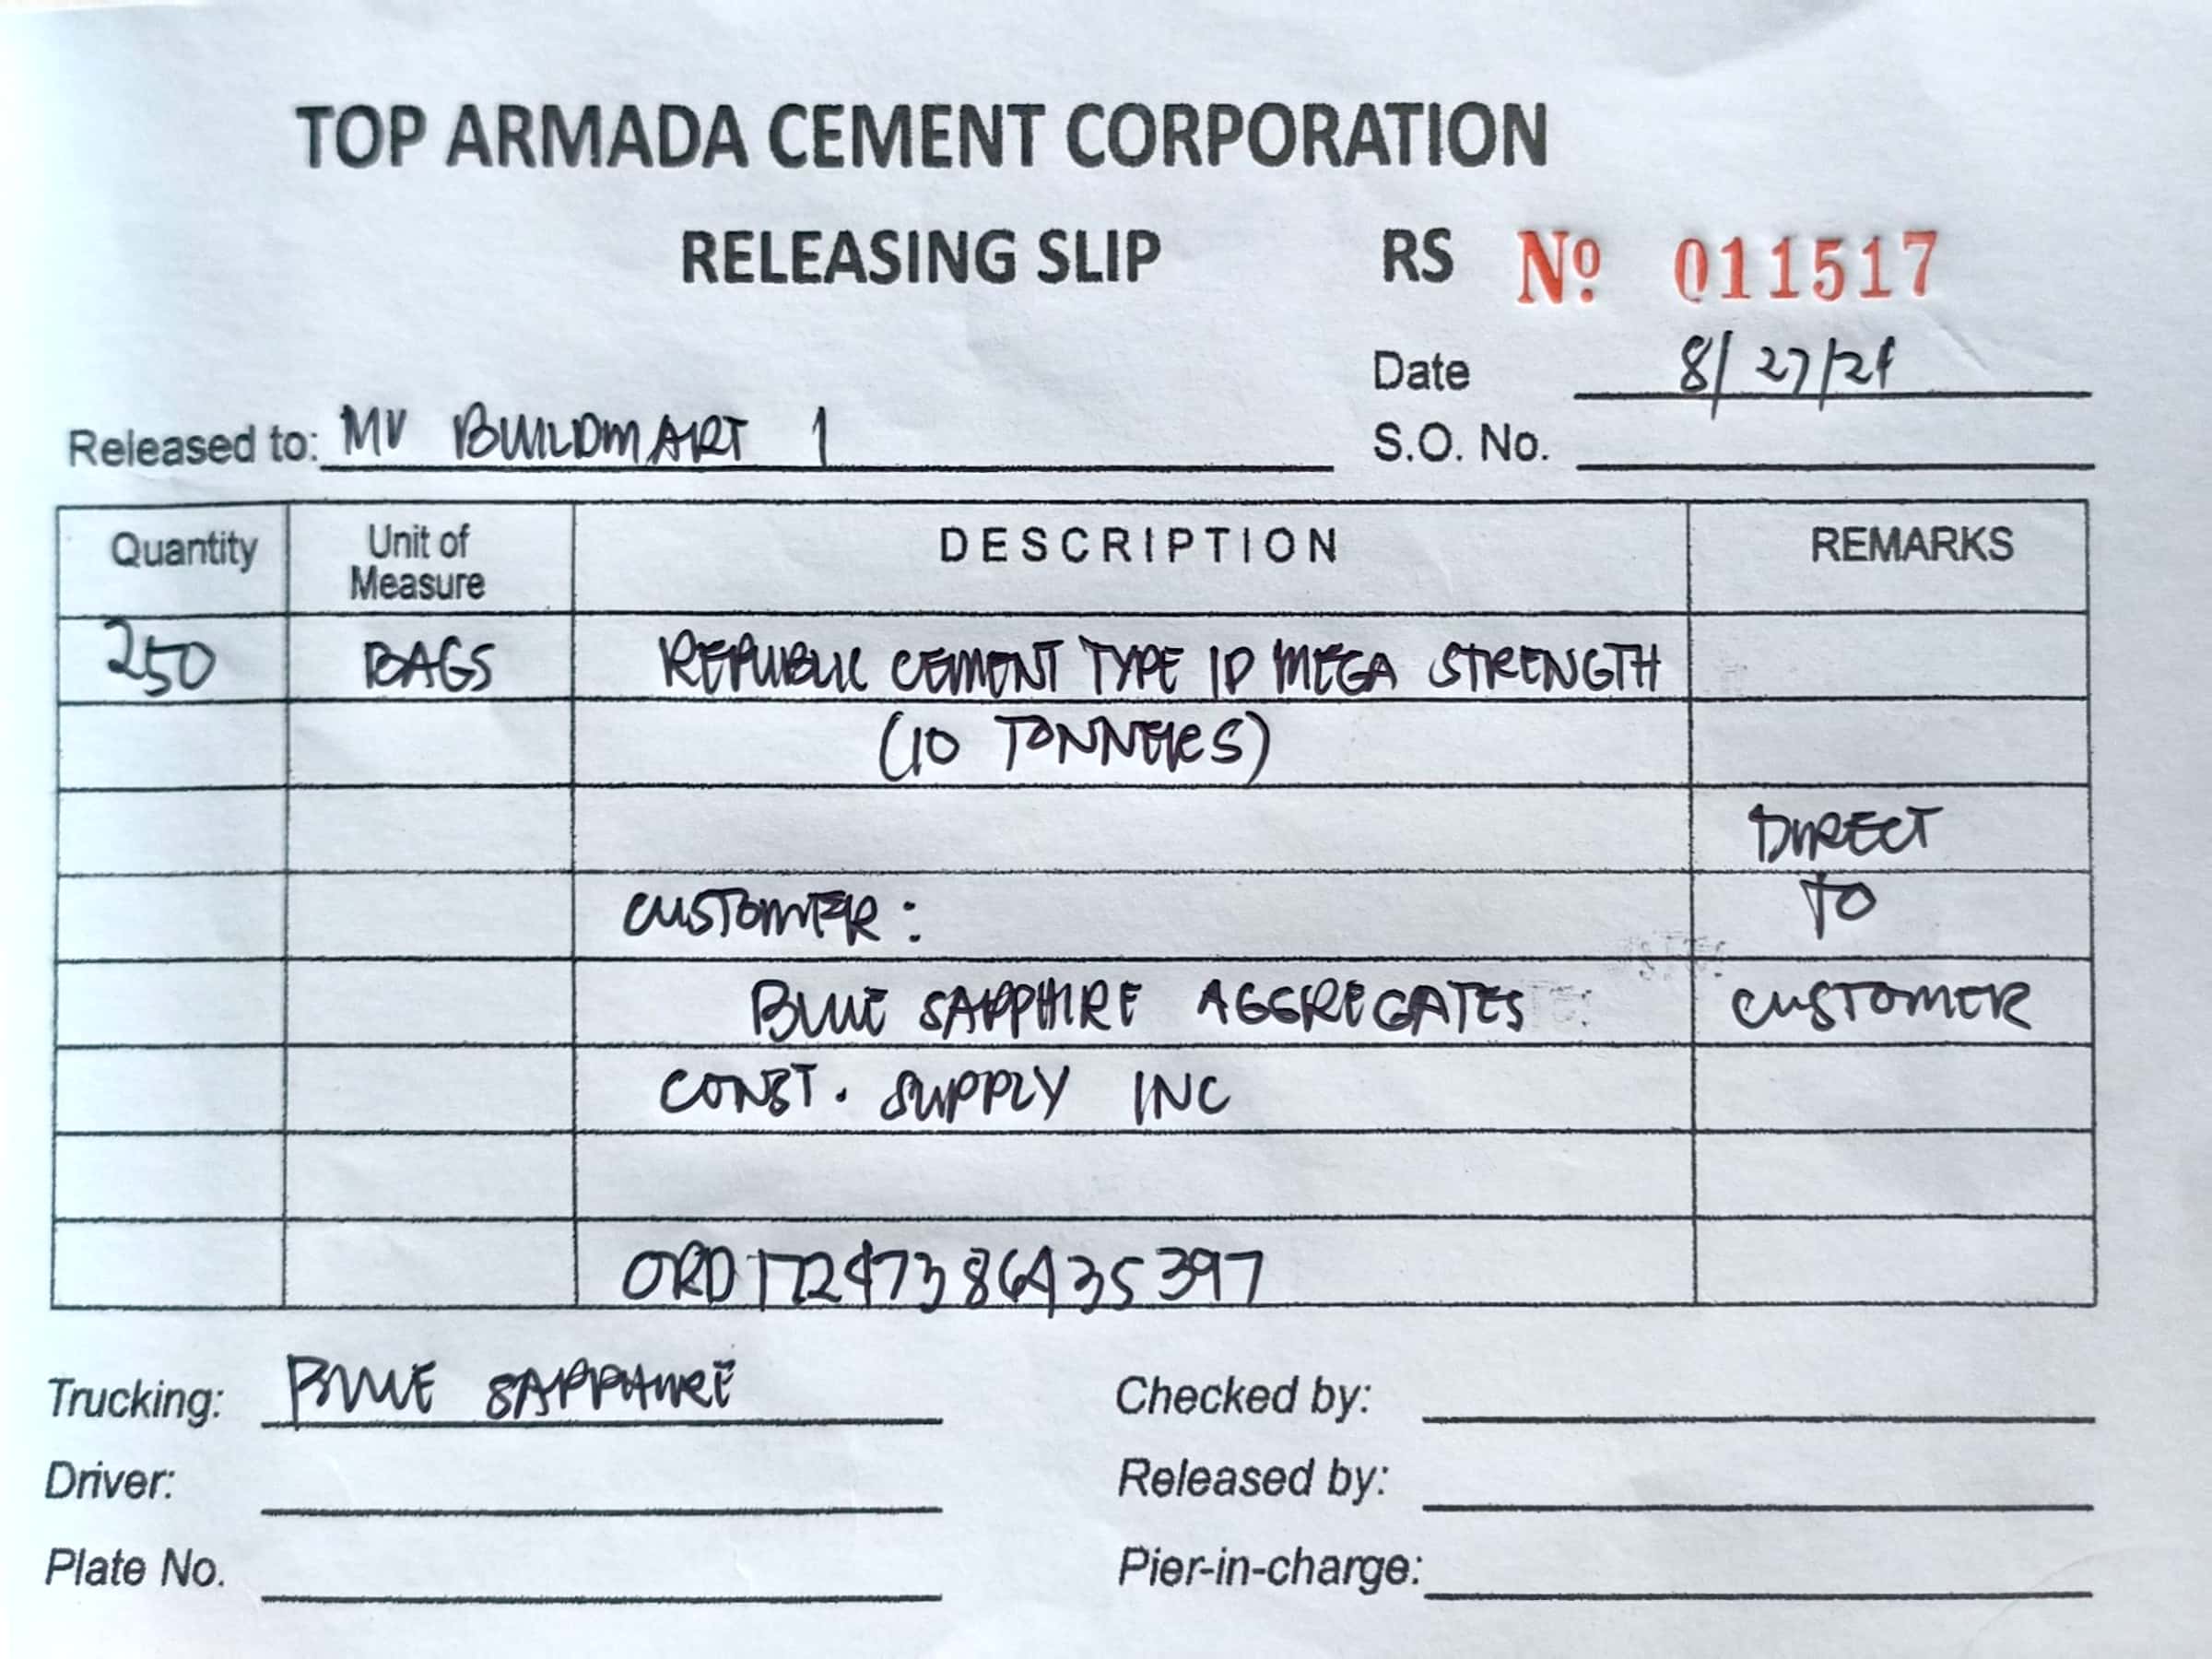 TOP ARMADA CEMENT CORPORATION
RELEASING SLIP RS Nº 011517
Date 8/27/24
Released to: MV BUILDMART 1 S.O. No.
Quantity Unit of Measure DESCRIPTION REMARKS
250 BAGS REPUBLIC CEMENT TYPE 1P MEGA STRENGTH
(10 TONNERS)
DIRECT
CUSTOMER: TO
BLUE SAPPHIRE AGGREGATES CUSTOMER
CONST. SUPPLY INC
ORD17247386435397
Trucking: BLUE SAPPHIRE Checked by:
Driver: Released by:
Plate No. Pier-in-charge: